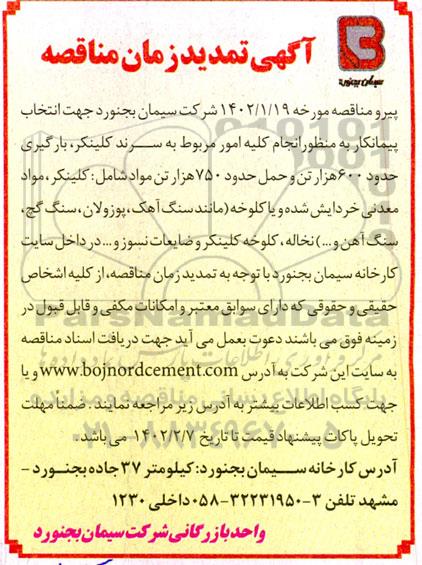 آگهی تمدید زمان مناقصه
سیمان بجنورد
پیرو مناقصه مورخه ۱۴۰۲/۱/۱۹ شرکت سیمان بجنورد جهت انتخاب
پیمانکار به منظور انجام کلیه امور مربوط به سرند کلینکر، بارگیری
حدود ۶۰۰ هزار تن و حمل حدود ۷۵۰ هزار تن مواد شامل: کلینکر، مواد
معدنی خردایش شده و یا کلوخه (مانند سنگ آهک، پوزولان، سنگ گچ،
سنگ آهن و...) نخاله، کلوخه کلینکر و ضایعات نسوز و... در داخل سایت
کارخانه سیمان بجنورد با توجه به تمدید زمان مناقصه، از کلیه اشخاص
حقیقی و حقوقی که دارای سوابق معتبر و امکانات مکفی و قابل قبول در
زمینه فوق می باشند دعوت بعمل می آید جهت دریافت اسناد مناقصه
به سایت این شرکت به آدرس www.bojnordcement.com و یا
جهت کسب اطلاعات بیشتر به آدرس زیر مراجعه نمایند. ضمنا مهلت
تحویل پاکات پیشنهاد قیمت تا تاریخ ۱۴۰۲/۲/۷ می باشد.
آدرس کارخانه سیمان بجنورد: کیلومتر ۳۷ جاده بجنورد -
مشهد تلفن ۳-۳۲۲۳۱۹۵۰-۰۵۸ داخلی ۱۲۳۰
واحد بازرگانی شرکت سیمان بجنورد